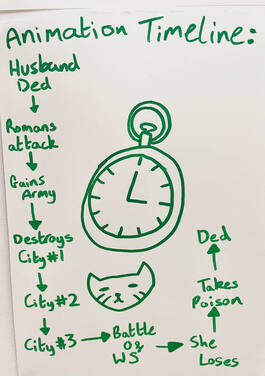 Animation Timeline:
Husband
Ded
Romans
attack
Gains
Army
Destroys
City#1
City#2
City#3
Battle
Of
WS
She
Loses
Takes
Poison
Ded